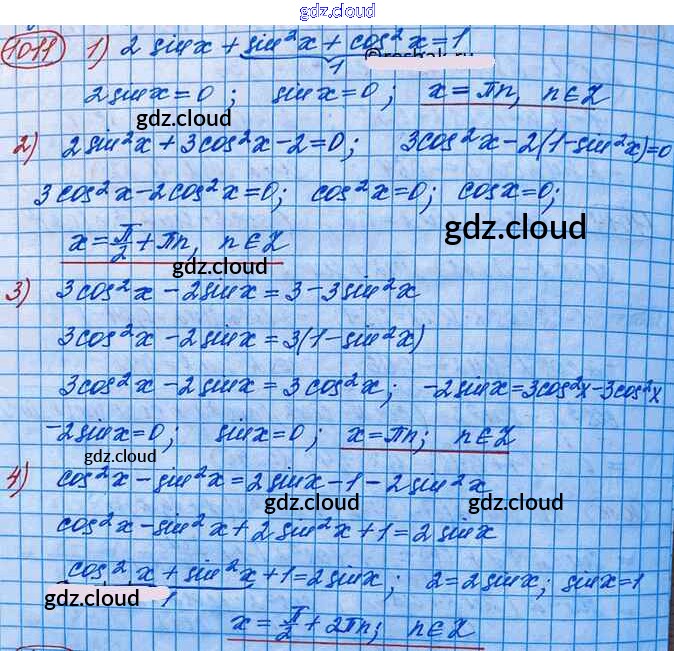 gdz.cloud
1011 1) 2 sin x + sin²x + cos²x = 1
1
2 sin x = 0; sin x = 0; x = πn, n ∈ Z
gdz.cloud
2) 2 sin²x + 3 cos²x - 2 = 0; 3 cos²x - 2(1 - sin²x) = 0
3 cos²x - 2 cos²x = 0; cos²x = 0; cos x = 0;
gdz.cloud
x = π/2 + πn, n ∈ Z
gdz.cloud
3) 3 cos²x - 2 sin x = 3 - 3 sin²x
3 cos²x - 2 sin x = 3(1 - sin²x)
3 cos²x - 2 sin x = 3 cos²x; -2 sin x = 3 cos²x - 3 cos²x
-2 sin x = 0; sin x = 0; x = πn; n ∈ Z
gdz.cloud
4) cos²x - sin²x = 2 sin x - 1 - 2 sin²x
gdz.cloud gdz.cloud
cos²x - sin²x + 2 sin²x + 1 = 2 sin x
cos²x + sin²x + 1 = 2 sin x; 2 = 2 sin x; sin x = 1
gdz.cloud 1
x = π/2 + 2πn; n ∈ Z